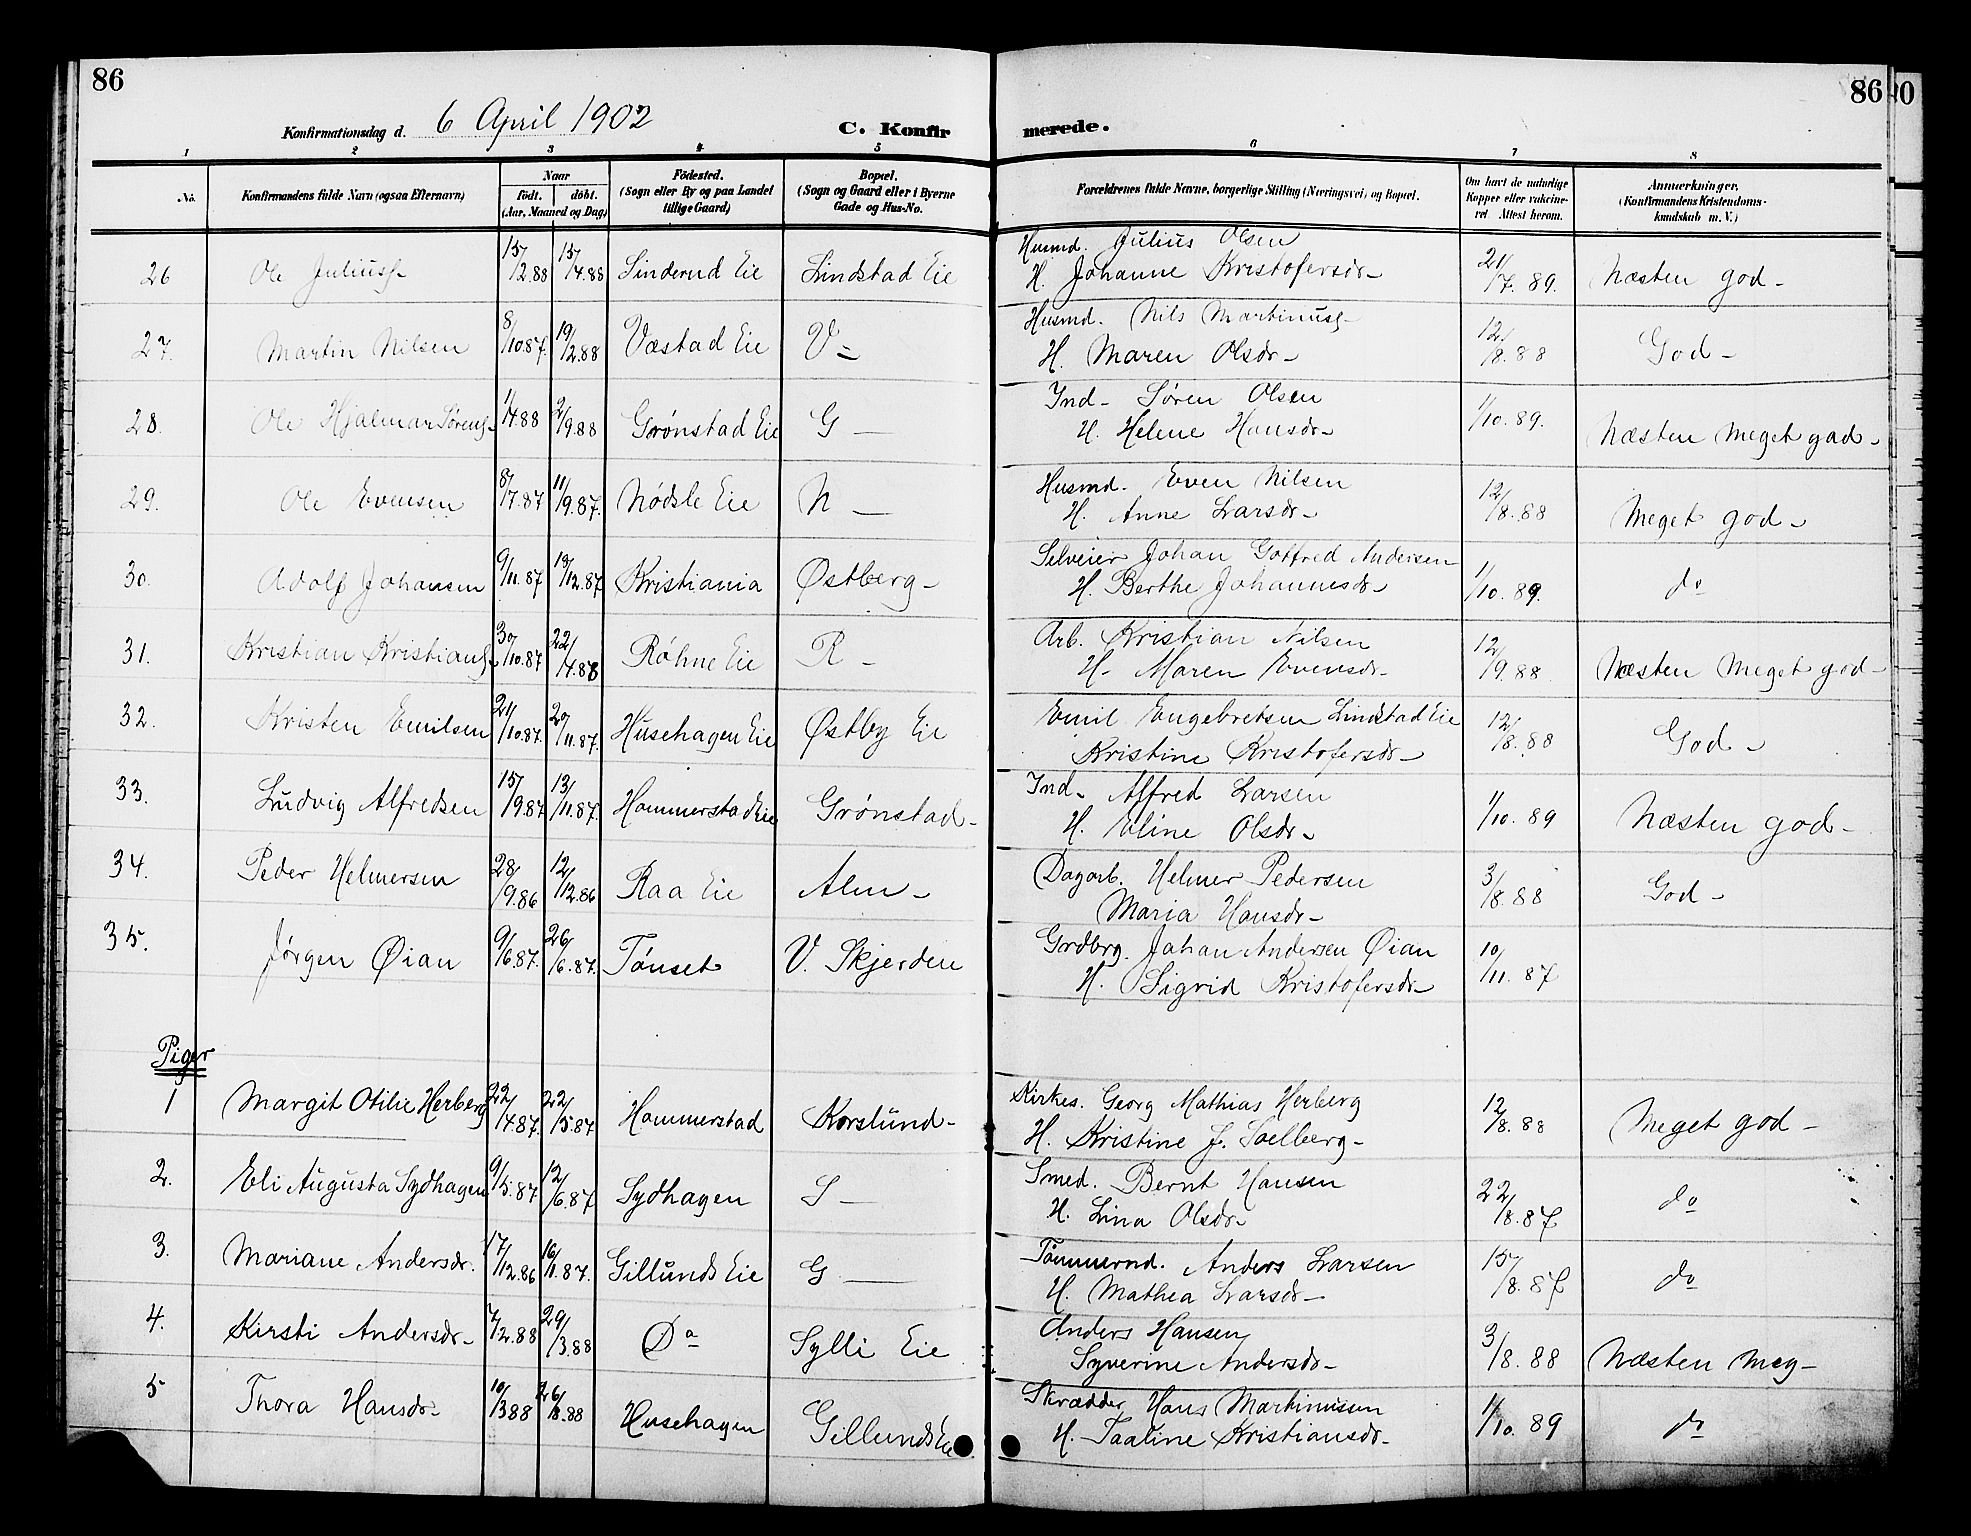 86
86
Konfirmationsdag d. 6 April 1902
C. Konfirmerede.
1 2 3 4 5 6 7 8
No. Konfirmandens fulde Navn (ogsaa Efternavn) Naar født. døbt. (Aar, Maaned og Dag) Fødested. (Sogn eller By og paa Landet tillige Gaard) Bopæl. (Sogn og Gaard eller i Byerne Gade og Hus-No. Forældrenes fulde Navne, borgerlige Stilling (Næringsvei) og Bopæl. Om havt de naturlige Kopper eller vaccineret Attest herom. Anmærkninger. (Konfirmandens Kristendomskundskab m. V.)
Husmd. Julius Olsen
26 Ole Juliuss- 15/12.88 15/4.88 Sinderud Eie Lindstad Eie H. Johanne Kristofersdr- 21/7.89. Næsten god-
Husmd. Nils Martinuss-
27. Martin Nilsen 8/10.87. 19/2.88 Væstad Eie V- H. Maren Olsdr- 12/8.88 God-
Ind- Søren Olsen
28. Ole Hjalmar Sørens- 1/4.88 2/9.88 Grønstad Eie G — H. Helene Hansdr- 1/10.89. Næsten meget god-
Husmd. Even Nilsen
29. Ole Evensen 8/7.87 11/9.87. Nødsle Eie N — H. Anne Larsdr- 12/8.88 Meget god-
Selveier Johan Gotfred Andersen
30. Adolf Johansen 9/11.87 /12.87 Kristiania Østberg- H. Berthe Johannesdr- 1/10.89. do
Arb. Kristian Nilsen
31. Kristian Kristians- 30/10.87 22/4.88 Røhne Eie R- H. Maren Evensdr- 12/9.88 Næsten meget god-
Emil Engebretsen Lindstad Eie
32. Kristen Emilsen 21/10.87. 20/11.87. Husehagen Eie Østby Eie Kristine Kristofersdr- 12/8.88 God-
Ind- Alfred Larsen
33. Ludvig Alfredsen 15/9.87 13/11.87. Hammerstad Eie Grønstad- H. Eline Olsdr- 1/10.89 Næsten god-
Dagarb. Helmer Pedersen
34. Peder Helmersen 28/9.86 12/12.86 Raa Eie Alm- Maria Hansdr- 3/8.88 God-
Grdbrg. Johan Andersen Øian
35. Jørgen Øian 9/6.87. 26/6.87. Tønset V. Skjerden H. Sigrid Kristofersdr- 10/11.87
Piger
Kirkes. Georg Mathias Herberg
1 Margit Otilie Herberg 22/4.87. 22/5.87 Hammerstad Korslund- H. Kristine J. Solberg- 12/8.88 Meget god-
Smed. Bernt Hansen
2. Eli Augusta Sydhagen 9/5.87 12/6.87 Sydhagen S- H. Lina Olsdr- 22/8.87 do
Tømmermd. Anders Larsen
3. Mariane Andersdr. 17/12.86 16/1.87. Gillunds Eie G — H. Mathea Larsdr- 15/8.87 do
Anders Hansen
4. Kirsti Andersdr- 7/2.88 29/3.88 Do Sylli Eie Syverine Andersdr- 3/8.88 Næsten meg-
Skrædder Hans Martinussen
5 Thora Hansdr- 10/3.88 Husehagen Gillunds Eie H. Taaline Kristiansdr- 1/10.89 do